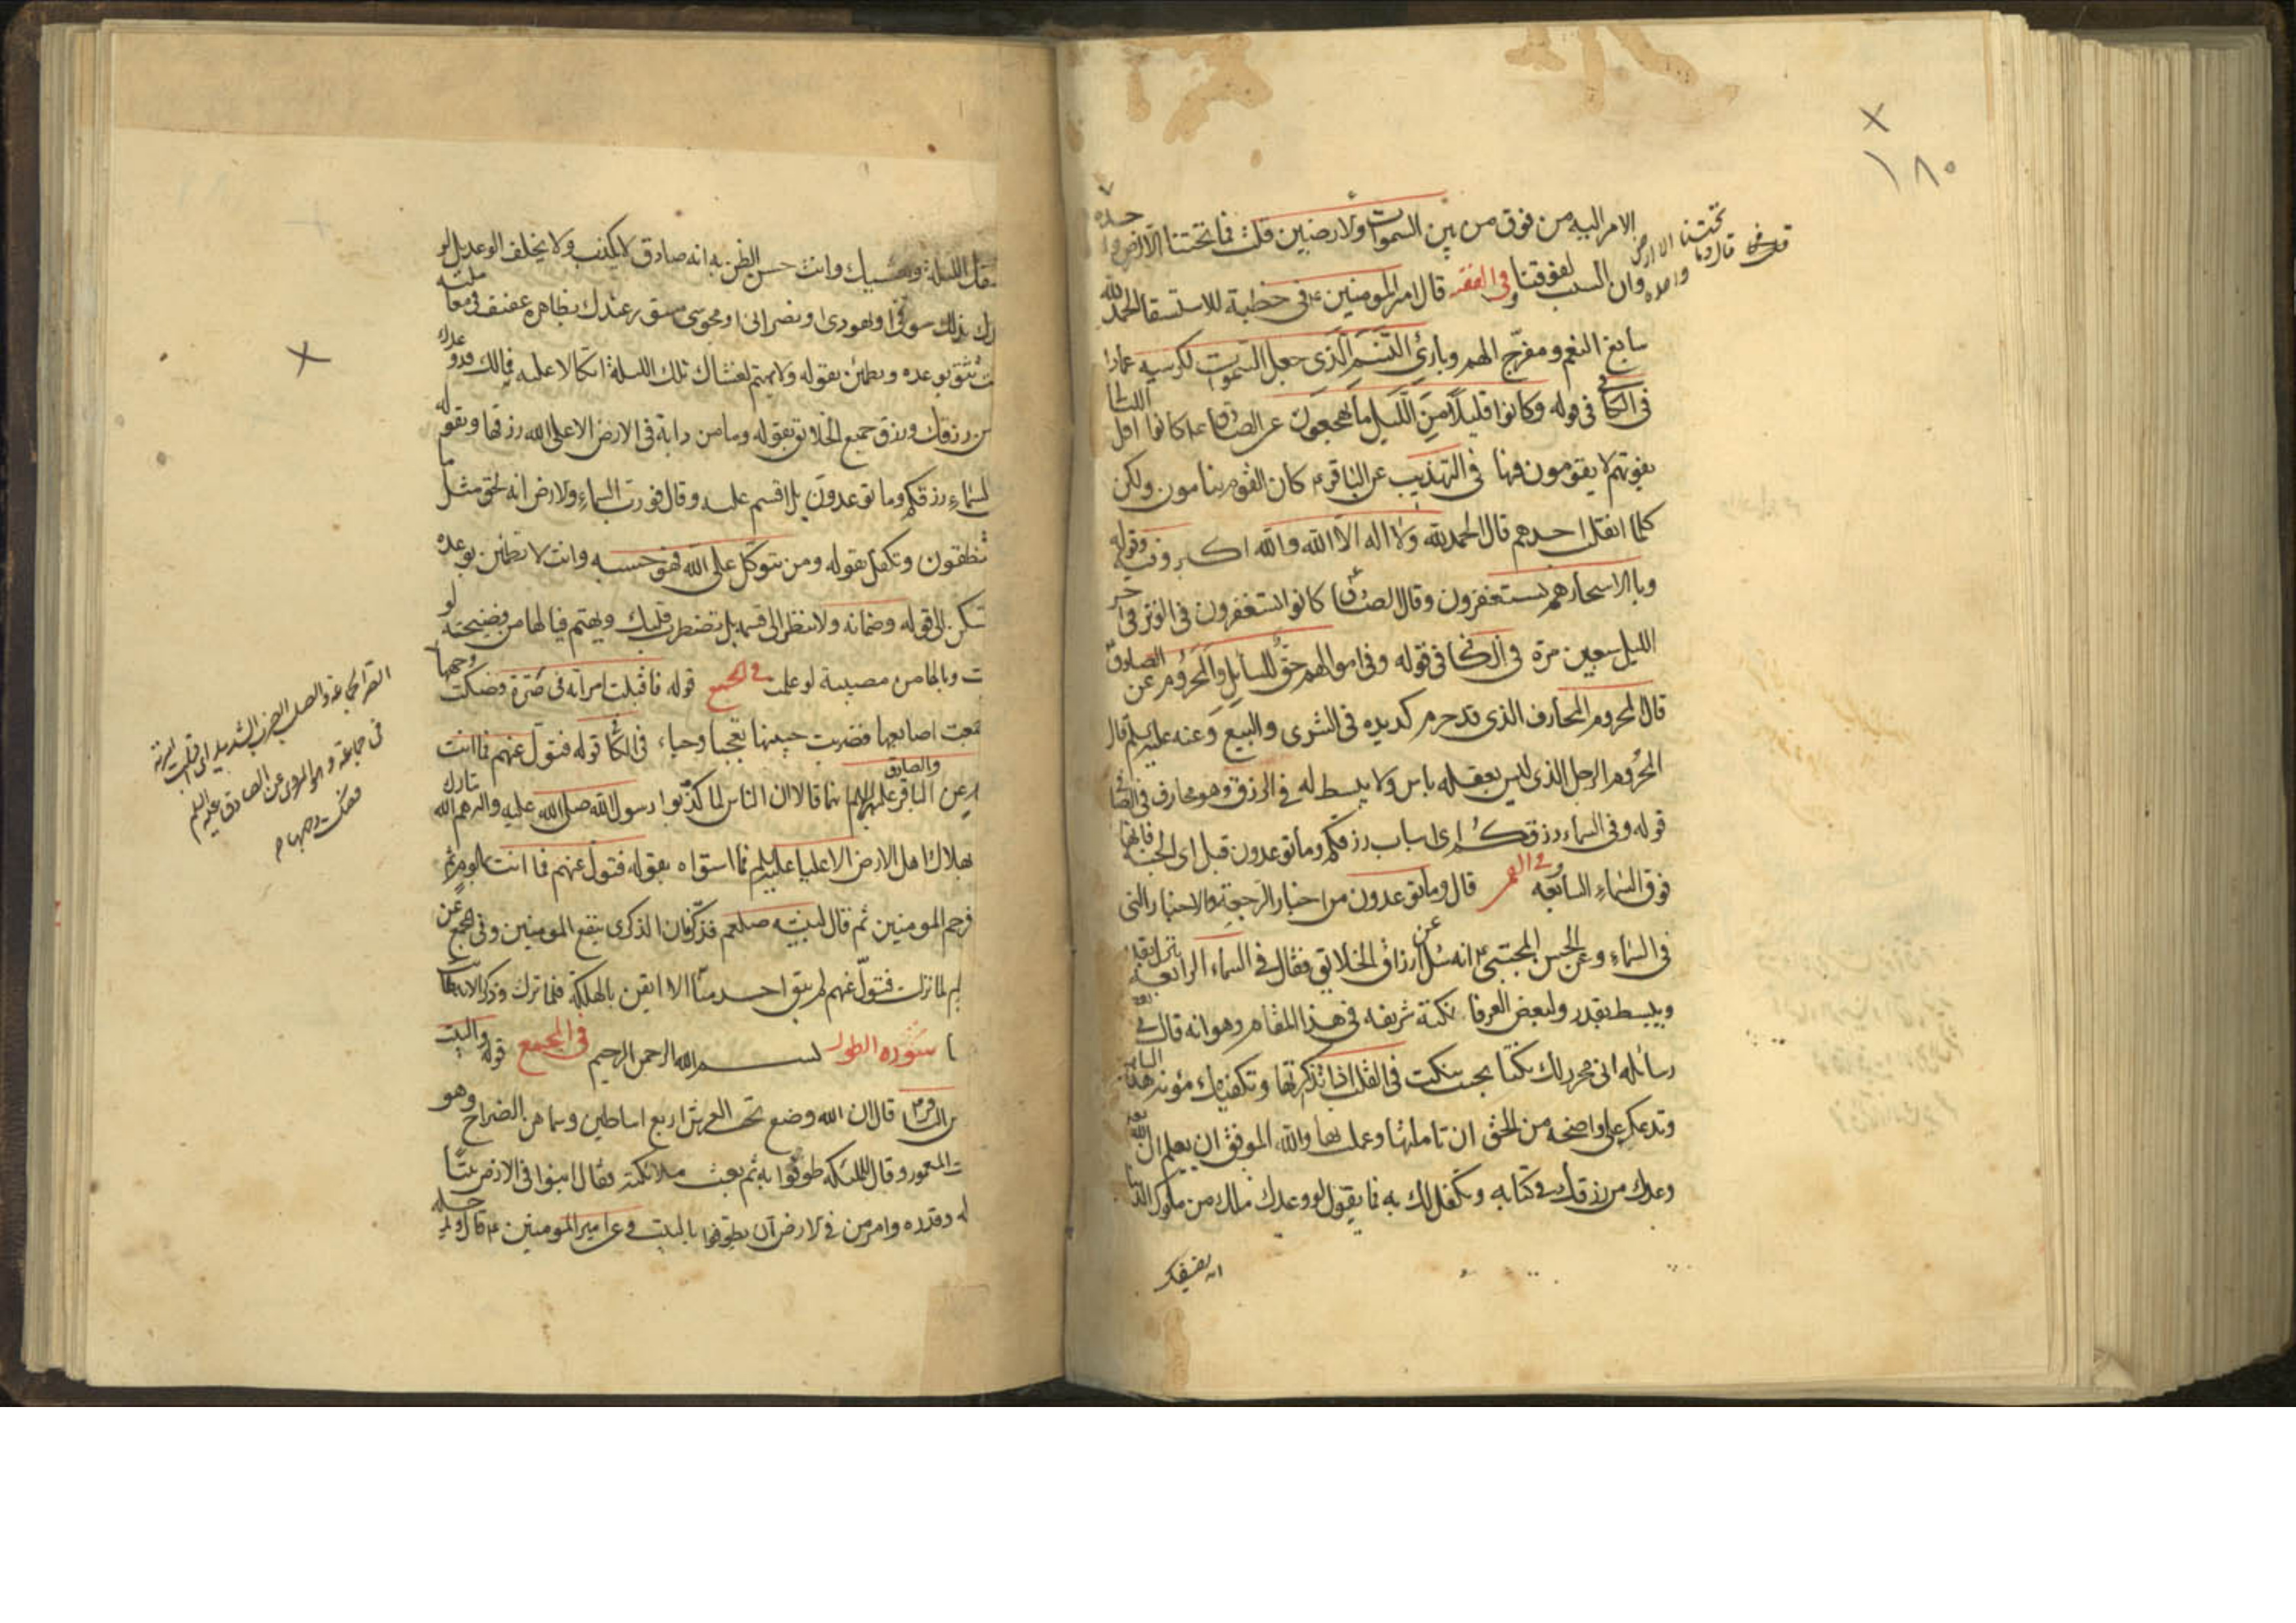 ١٨٠
الامر اليه من فوق من بين السموات والارضين قلت فما تحتنا الا ارض واحدة
وان الست لفوقنا وفى الفقيه قال امير المومنين ع فى خطبة للاستسقا الحمد لله
سابغ النعم ومفرّج الهم وبارئ النسم الذى جعل السموات لكرسيه عمادا
فى الكافى فى قوله وكانوا قليلا من الليل ما يهجعون عن الصادق ع كانوا اقل الليالى
يفوتهم لا يقومون فيها فى التهذيب عن الباقر ع كان القوم ينامون ولكن
كلما انقلب احدهم قال الحمد لله ولا اله الا الله والله اكبر وفيه وقوله
وبالاسحار هم يستغفرون وقال الصادق ع كانوا يستغفرون فى الوتر فى اخر
الليل سبعين مرة فى الكافى فى قوله وفى اموالهم حق للسايل والمحروم عن الصادق
قال المحروم المحارف الذى قد حرم كد يده فى الشرى والبيع وعنه عليه السلم قال
المحروم الرجل الذى ليس بعقله باس ولا يبسط له فى الرزق وهو محارف فى الصافى
قوله وفى السماء رزقكم اى اسباب رزقكم وما توعدون قيل اى الجنة فانها
فوق السماء السابعة وفى القمى قال وما توعدون من اخبار الرجعة والاخبار التى
فى السماء وعن الحسن المجتبى ع انه سئل عن ارزاق الخلائق فقال فى السماء الرابعة ينزل بقدر
ويبسط بقدر ولبعض العرفا نكتة شريفه فى هذا المقام وهو انه قال فى بعض
رسائله انى محرر لك نكتا بحيث ينكت فى القلب اذا تذكرتها وتكفيك مؤنة هذا الباب
وتدعك على واضحة من الحق ان تاملتها وعملت بها والله الموفق ان يعلم ان الله
وعدك من رزقك فى كتابه وتكفل لك به فما يقول لو وعدك ملك من ملوك الدنيا
انه يضيفك
قلت فما تحتنا الا ارض
قال وما تحتنا الا ارض واحده
يضيفك الليلة ويعشيك وانت حسن الظن به انه صادق لا يكذب ولا يخلف الوعد بل لو
وعدك بذلك سوقى او يهودى او نصرانى او مجوسى مستور عندك بظاهره عفيف فى معاملته
كنت تثق بوعده وتطمئن بقوله ولا تهتم لعشاك تلك الليلة اتكالا عليه فما لك قد وعدك
من رزقك ورزق جميع الخلائق بقوله وما من دابة فى الارض الا على الله رزقها وبقوله
السماء رزقكم وما توعدون بل اقسم عليه وقال فورب السماء والارض انه لحق مثل ما
تنطقون وتكفل بقوله ومن يتوكل على الله فهو حسبه وانت لا تطمئن بوعده
تسكن الى قوله وضمانه ولا تنظر الى قسمه بل تضطرب قلبك ويهتم فيا لها من فضيحة لو
ت ويا لها من مصيبة لو علمت فى المجمع قوله فاقبلت امراته فى صرة وصكت وجهها
جمعت اصابعها فضربت جبينها تعجبا وحياء فى الكافى قوله فتول عنهم فما انت
عن الباقر والصادق عليهما السلم انهما قالا ان الناس لما كذبوا رسول الله صلى الله عليه واله هم الله تبارك
بهلاك اهل الارض الا عليا عليه السلم فما سواه بقوله فتول عنهم فما انت بملوم ثم
فرحم المومنين ثم قال لنبيه صلعم فذكر فان الذكرى تنفع المومنين وفى المجمع عن
لم لما نزلت فتول عنهم لم يبق احد منا الا ايقن بالهلكة فلما نزلت وذكر الاية طابت
سورة الطور بسم الله الرحمن الرحيم فى المجمع قوله والبيت
عن الباقر ع قال ان الله وضع تحت العرش اربع اساطين وسماهن الضراح وهو
البيت المعمور وقال للملئكة طوفوا به ثم بعث ملائكته فقال ابنوا فى الارض بيتا
له وقدره وامر من فى الارض ان يطوفوا بالبيت وعن امير المومنين ع قال
فى جماعة وهو المروى عن الصادق عليه السلم
فصكت وجهها